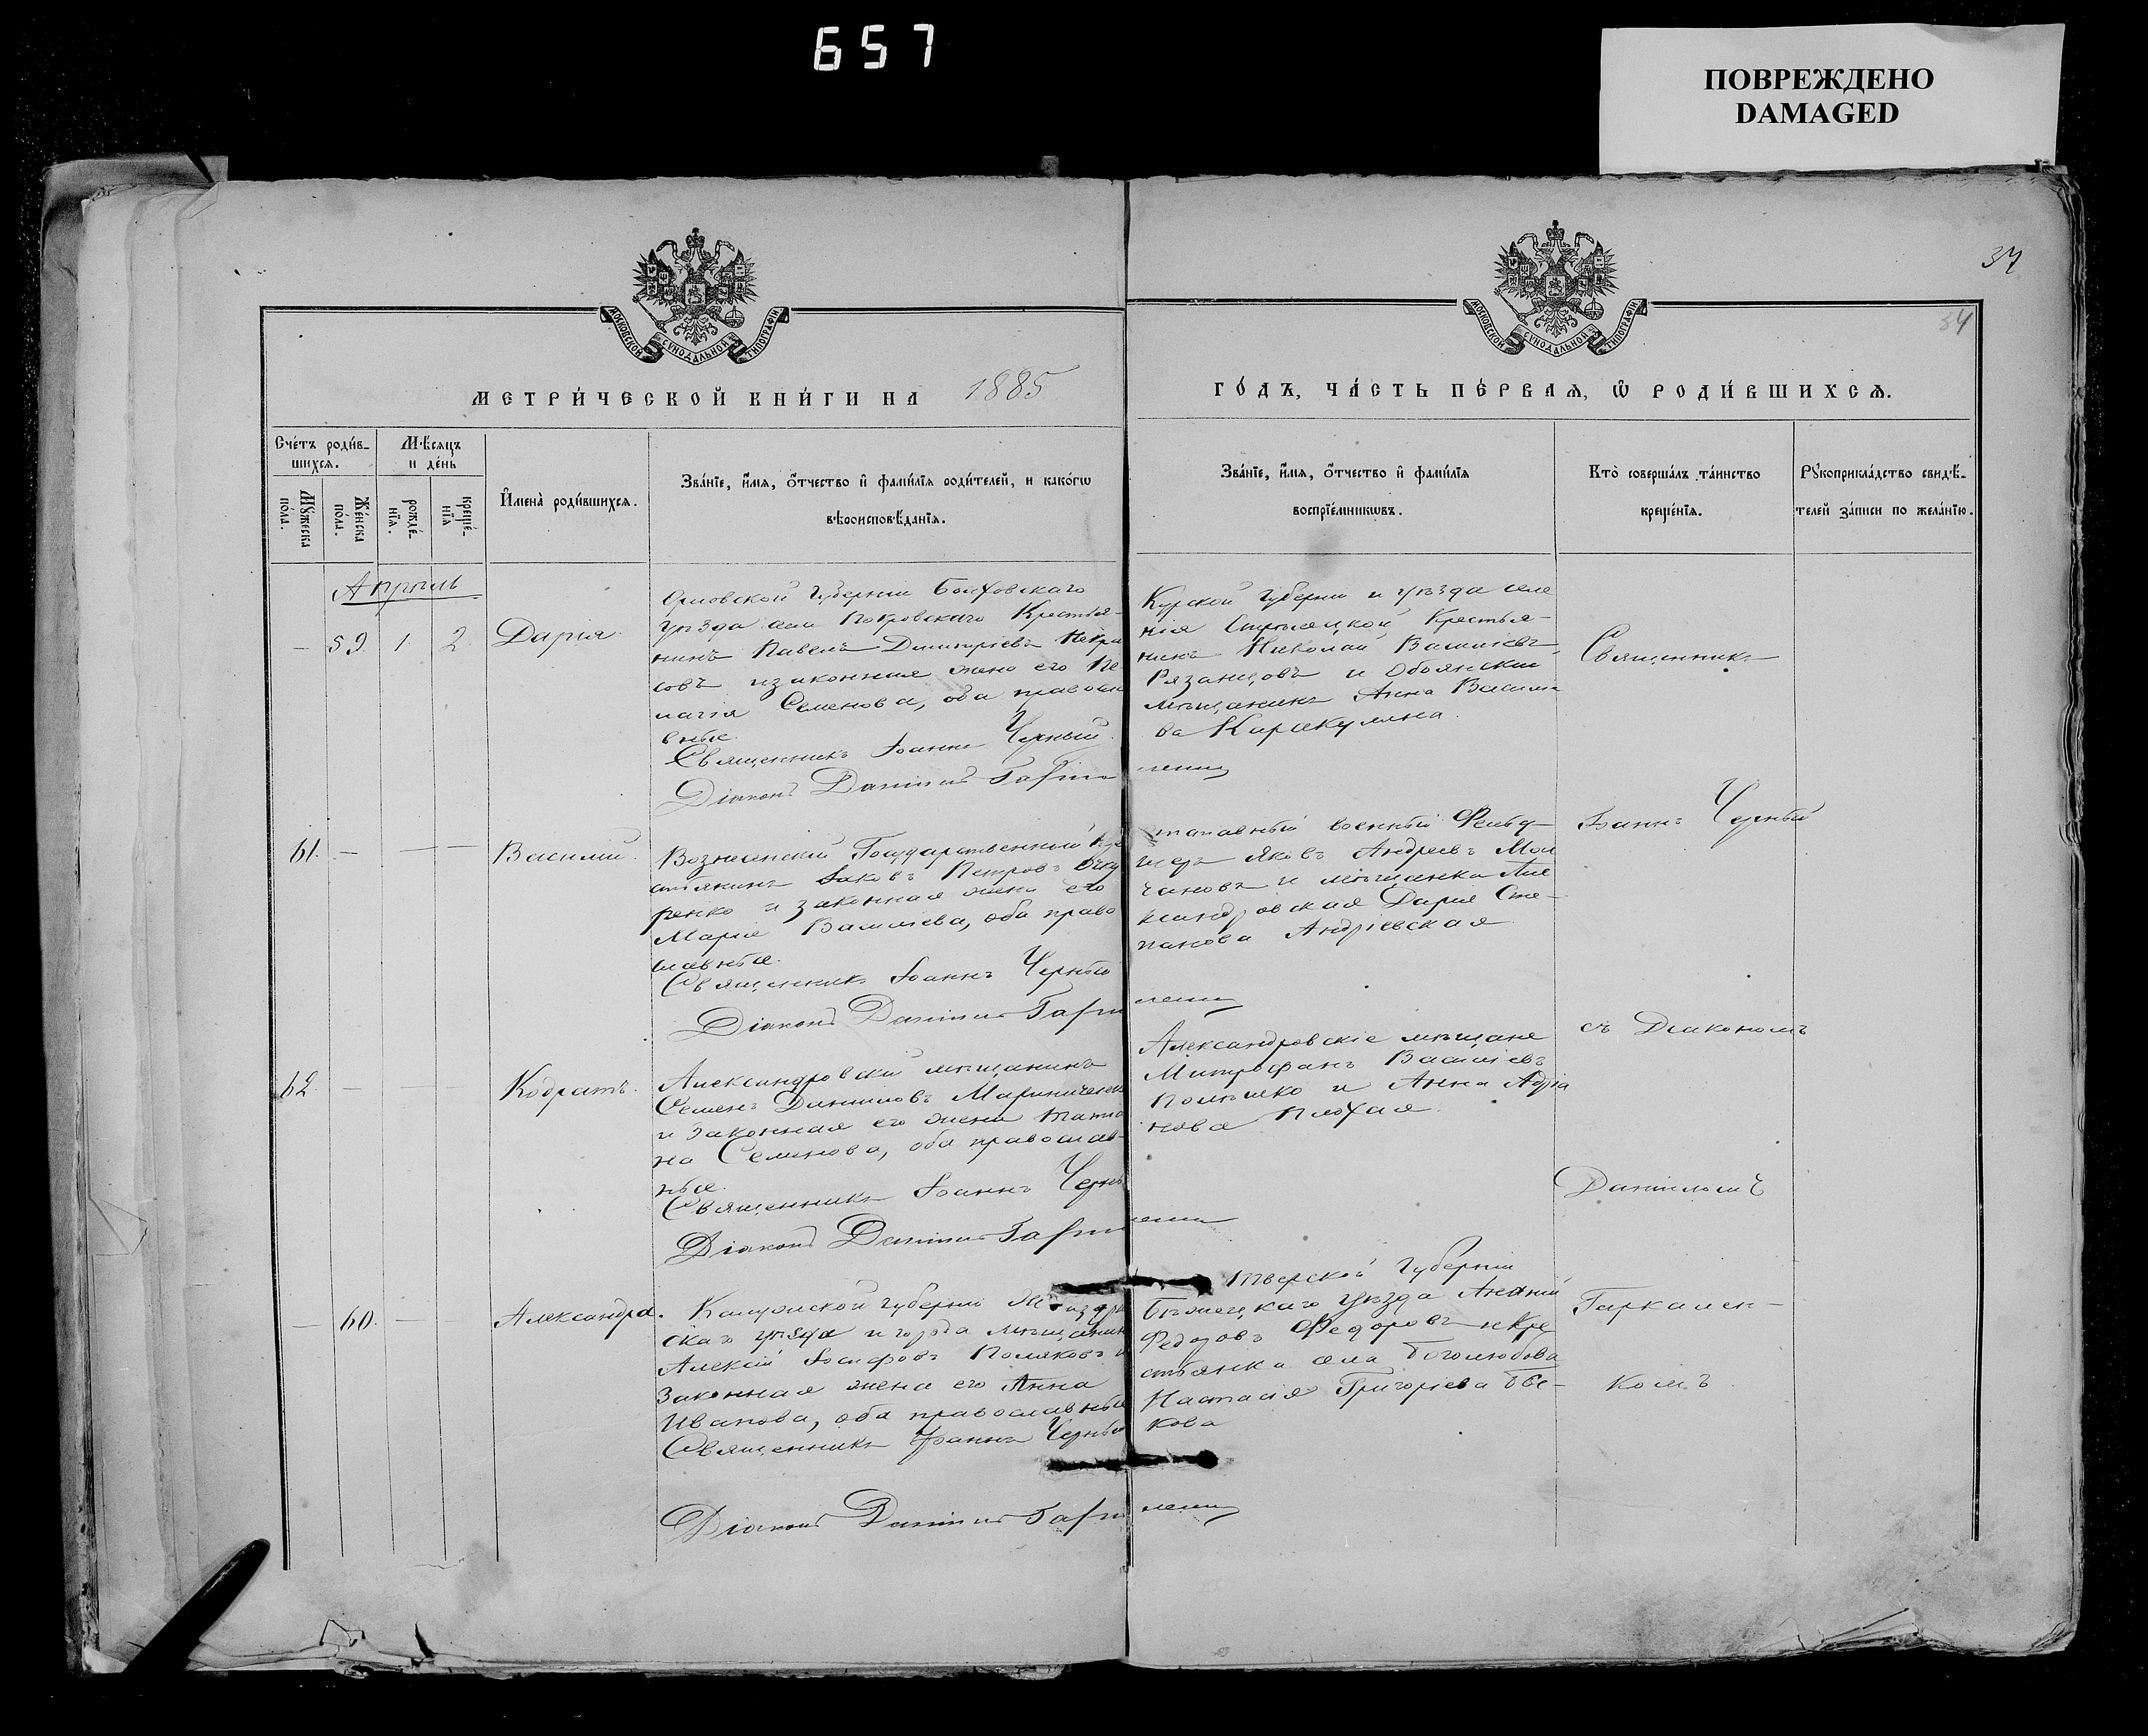 657
ПОВРЕЖДЕНО
DAMAGED
37
34
МОСКОВСКОЙ СѴНОДАЛЬНОЙ ТИПОГРАФІИ
МОСКОВСКОЙ СѴНОДАЛЬНОЙ ТИПОГРАФІИ
МЕТРИ́ЧЕСКОЙ КНИ́ГИ НА 1885
ГО́ДЪ, ЧА́СТЬ ПЕ́РВАѦ, Ѽ РОДИ́ВШИХСѦ.
Сче́тъ роди́в-
шихсѧ.
Мꙋ́жеска
по́ла.
Же́нска
по́ла.
Мѣ́сяцъ
и де́нь
рожде́-
нїѧ.
креще́-
нїѧ
И҆мена̀ роди́вшихсѧ.
Зва́нїе, и҆́мѧ, ѻ҆́тчество и҆ фами́лїѧ роди́телей, и како́гѡ
вѣроисповѣ́данїѧ.
Зва́нїе, и҆́мѧ, ѻ҆́тчество и҆ фами́лїѧ
воспрїе́мникѡвъ.
Кто̀ соверша́лъ та́инство
креще́нїѧ.
Рꙋкоприкла́дство свидѣ́-
телей за́писи по жела́нїю.
Апрѣль
— 59. 1 2. Дарія.
Орловской губерніи Болховскаго
уѣзда села Покровскаго Крестья-
нинъ Павелъ Димитріевъ Некра
совъ и законная жена его Пе-
лагія Семенова, оба правосла
вные.
Священникъ Іоаннъ Черный.
Діаконъ Даніилъ Гар
ленко
Курской губерніи и уѣзда селе
нія Стрѣлецкой Крестья-
нинъ Николай Василіевъ
Рязанцовъ и Обоянская
мѣщанинъ Анна Василіе
ва Каракулина.
Священникъ
61. — — — Василій.
Вознесенскій Государственный Кре
стьянинъ Іаковъ Петровъ
ренко и законная жена его
Марія Василіева, оба право
славные.
Священникъ Іоаннъ Черный
Діаконъ Даніилъ Гар
ленко
военный Фельд-
шеръ Яковъ Андреевъ Мол
чановъ и мѣщанка Але
ксандровская Дарія Сте-
панова Андріевская
Іоаннъ Черный
62. — — — Кодратъ.
Александровскій мѣщанинъ
Семенъ Даниловъ Мариниченко
и законная его жена Татіа
на Семенова, оба православ-
ные.
Священникъ Іоаннъ Черны
Діаконъ Даніилъ Гар
ленко
Александровскіе мѣщане
Митрофанъ Василіевъ
и Анна Адріа
нова Плохая.
съ Діакономъ
Даніиломъ
— 60. — — Александра.
Калужской губерніи Жиздрин
скаго уѣзда и города мѣщанинъ
Алексій Іосифовъ Поляковъ и
законная жена его Анна
Иванова, оба православные
Священникъ Іоаннъ Черный
Діаконъ Даніилъ Гар
ленко
Тверской губерніи
Бѣжецкаго уѣзда
Федоровъ Федоровъ и кре
стьянка села Боголюбова
Настасія Григоріева Бы-
кова
Гаркален-
комъ